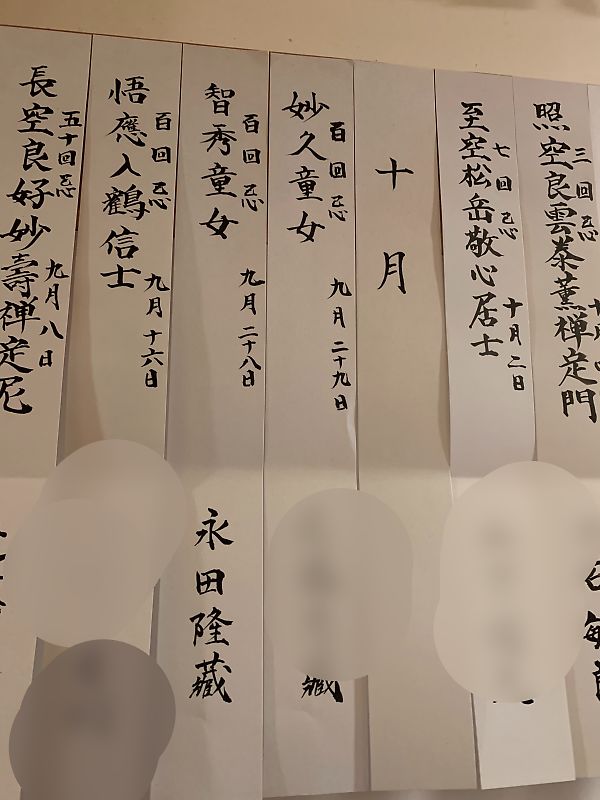 長空良好妙壽禅定尼
五十回忌
九月八日
悟應入鶴信士
百回忌
九月十六日
智秀童女
百回忌
九月二十八日
永田隆藏
妙久童女
百回忌
九月二十九日
藏
十月
至空松岳敬心居士
七回忌
十月二日
照空良雲泰薫禅定門
三回忌
十月
敏